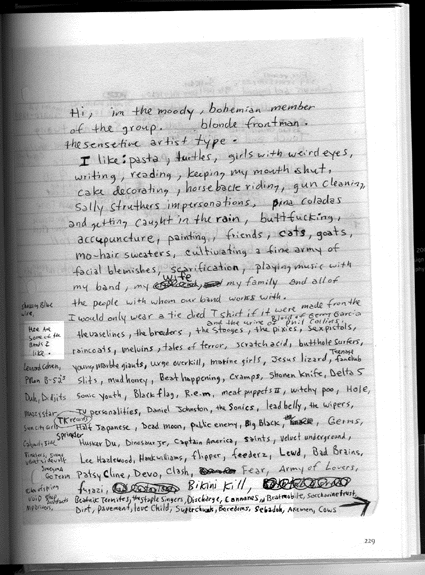 Hi, im the moody, bohemian member
of the group. blonde frontman.
the sensetive artist type.
I like: pasta, turtles, girls with weird eyes,
writing, reading, keeping my mouth shut,
cake decorating, horseback riding, gun cleaning,
Sally Struthers impersonations, pina coladas
and getting caught in the rain, buttfucking,
accupuncture, painting, friends, cats, goats,
mo-hair sweaters, cultivating a fine army of
facial blemishes, scarification, playing music with
wife
my band, my my family and all of
the people with whom our band works with.
I would only wear a tie died T shirt if it were made from the
Blood of Jerry Garcia
and the urine of Phil Collins.
Here are
some of the
Bands I
like.
the vaselines, the breeders, the Stooges, the pixies, Sex pistols,
raincoats, melvins, tales of terror, scratch acid, butthole Surfers,
Leonard Cohen,
young marble giants, urge overkill, marine girls, Jesus lizard, Teenage
fanclub
B-52s
Slits, mudhoney, Beat happening, Cramps, Shonen Knife, Delta 5
Dub, Didjits
Sonic youth, Black flag, R.e.m, meat puppets II, witchy poo, Hole,
mazzystar
TV personalities, Daniel Johnston, the Sonics, leadbelly, the wipers,
TK records
Half Japanese, Dead moon, public enemy, Big Black, Germs,
Husker Du, Dinosaur jr, Captain America, saints, velvet underground,
Lee Hazlewood, Hank williams, flipper, feederz, Lewd, Bad Brains,
Patsy Cline, Devo, Clash, Fear, Army of Lovers,
fugazi, Bikini Kill,
Beatnic Termites, the staple singers, Discharge, Cannanes, Beatmobile, Saccharine trust,
Dirt, pavement, love Child, Superchunk, Boredoms, Sebadoh, Axemen, Cows
229